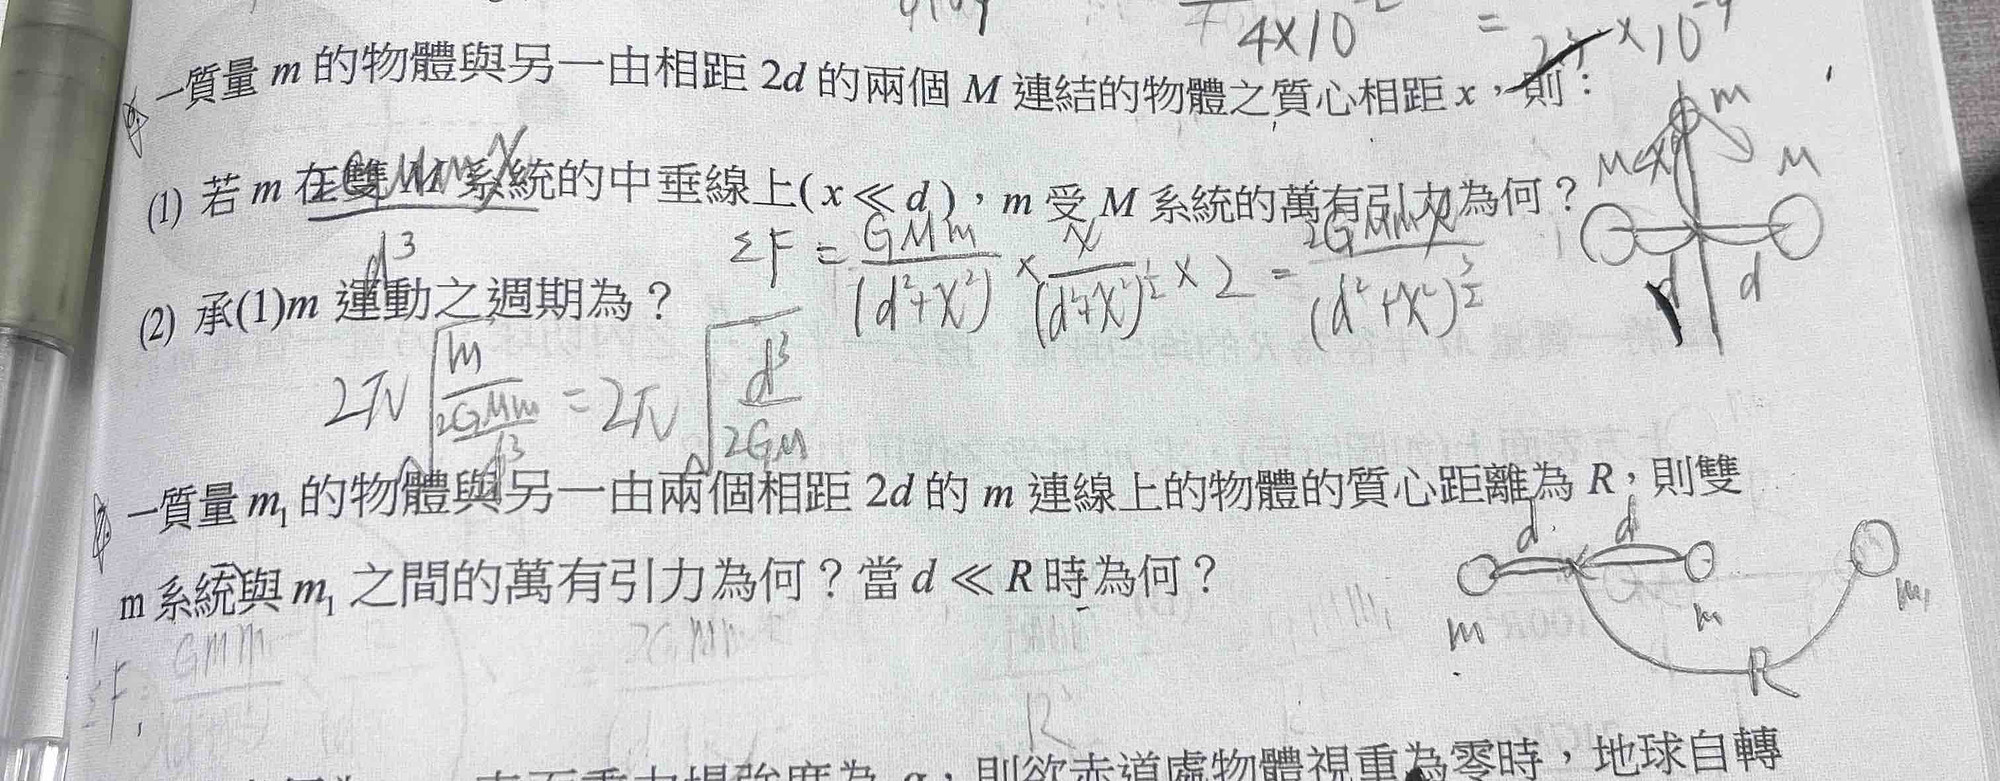 4×10⁻²
=
×10⁻⁹
一質量 m 的物體與另一由相距 2d 的兩個 M 連結的物體之質心相距 x，則：
(1) 若 m 在雙 M 系統的中垂線上(x ≪ d)，m 受 M 系統的萬有引力為何？
d³
ΣF = GMm/(d²+x²) × x/(d²+x²)^½ × 2 = 2GMmx/(d²+x²)^(3/2)
m
M
M
d
d
(2) 承(1)m 運動之週期為？
2π√(m/(2GMm/d³)) = 2π√(d³/2GM)
一質量 m₁ 的物體與另一由兩個相距 2d 的 m 連線上的物體的質心距離為 R，則雙
m 系統與 m₁ 之間的萬有引力為何？當 d ≪ R 時為何？
d
d
m
m
m₁
R
，則欲赤道處物體視重為零時，地球自轉